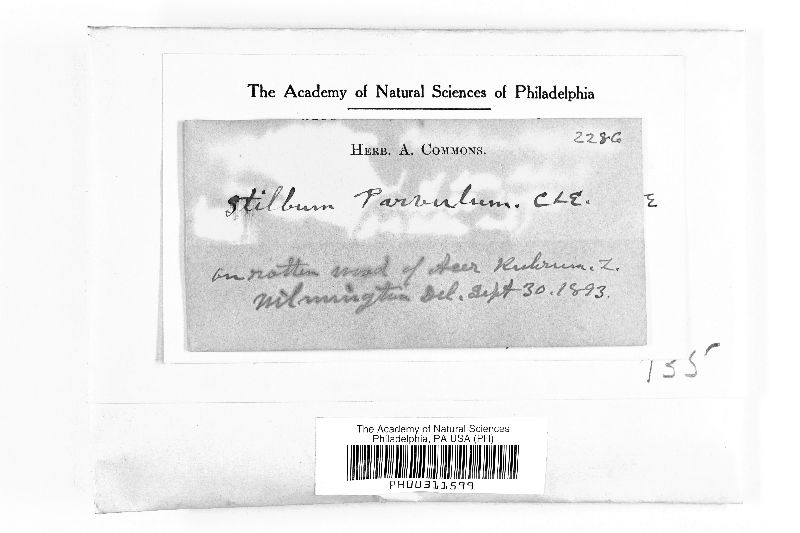 The Academy of Natural Sciences of Philadelphia
HERB. A. COMMONS.
2286
Stilbum Parvulum. C&E.
E
on rotten wood of Acer Rubrum. L.
Wilmington Del. Sept 30. 1893.
155
The Academy of Natural Sciences
Philadelphia, PA USA (PH)
PH00311599